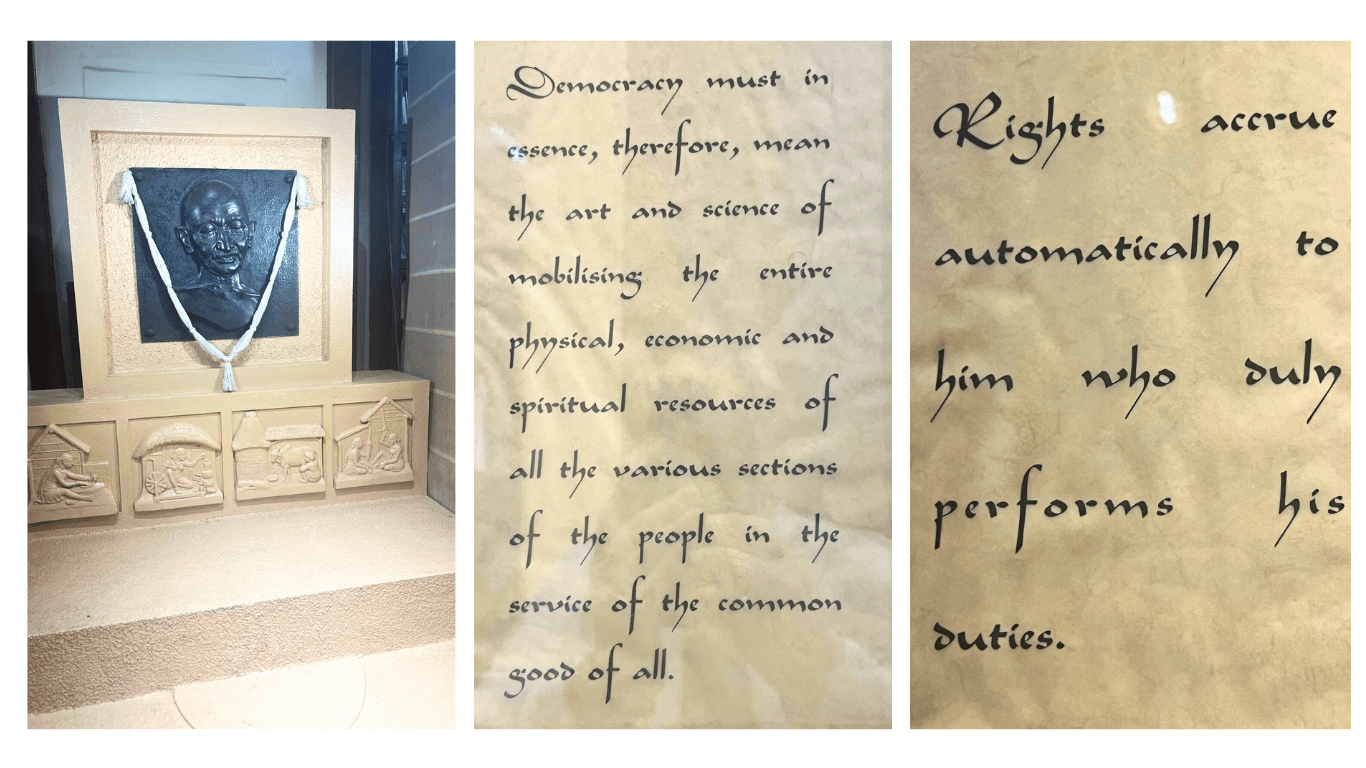 Democracy must in
essence, therefore, mean
the art and science of
mobilising the entire
physical, economic and
spiritual resources of
all the various sections
of the people in the
service of the common
good of all.
Rights accrue
automatically to
him who duly
performs his
duties.